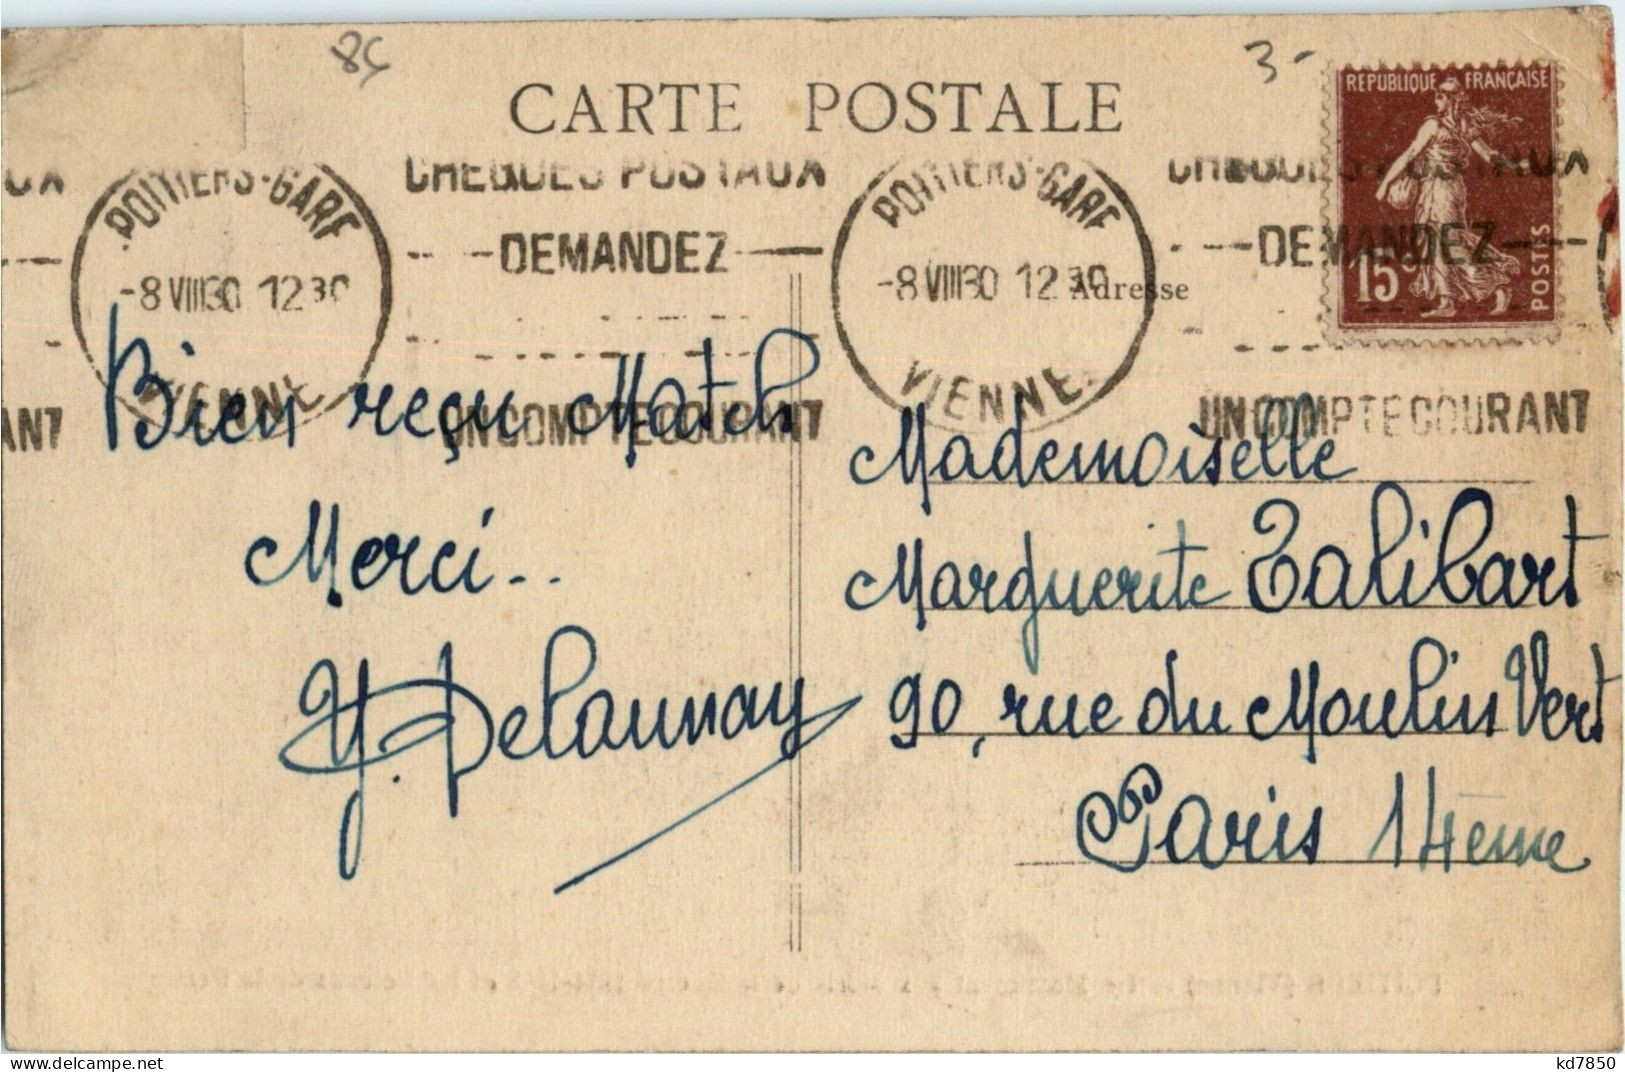 84
3-
CARTE POSTALE
REPUBLIQUE FRANÇAISE
15c
POSTES
UX
ANT
POITIERS-GARE
-8 VIII30 12 30
VIENNE
CHEQUES POSTAUX
DEMANDEZ
UN COMPTE COURANT
POITIERS-GARE
-8 VIII30 12 30
VIENNE
CHEQUES POSTAUX
DEMANDEZ
UN COMPTE COURANT
Adresse
Bien reçu Match
Merci..
Y. Delaunay
Mademoiselle
Marguerite Talibart
90, rue du Moulin Vert
Paris 14ème
delcampe.net
kd7850